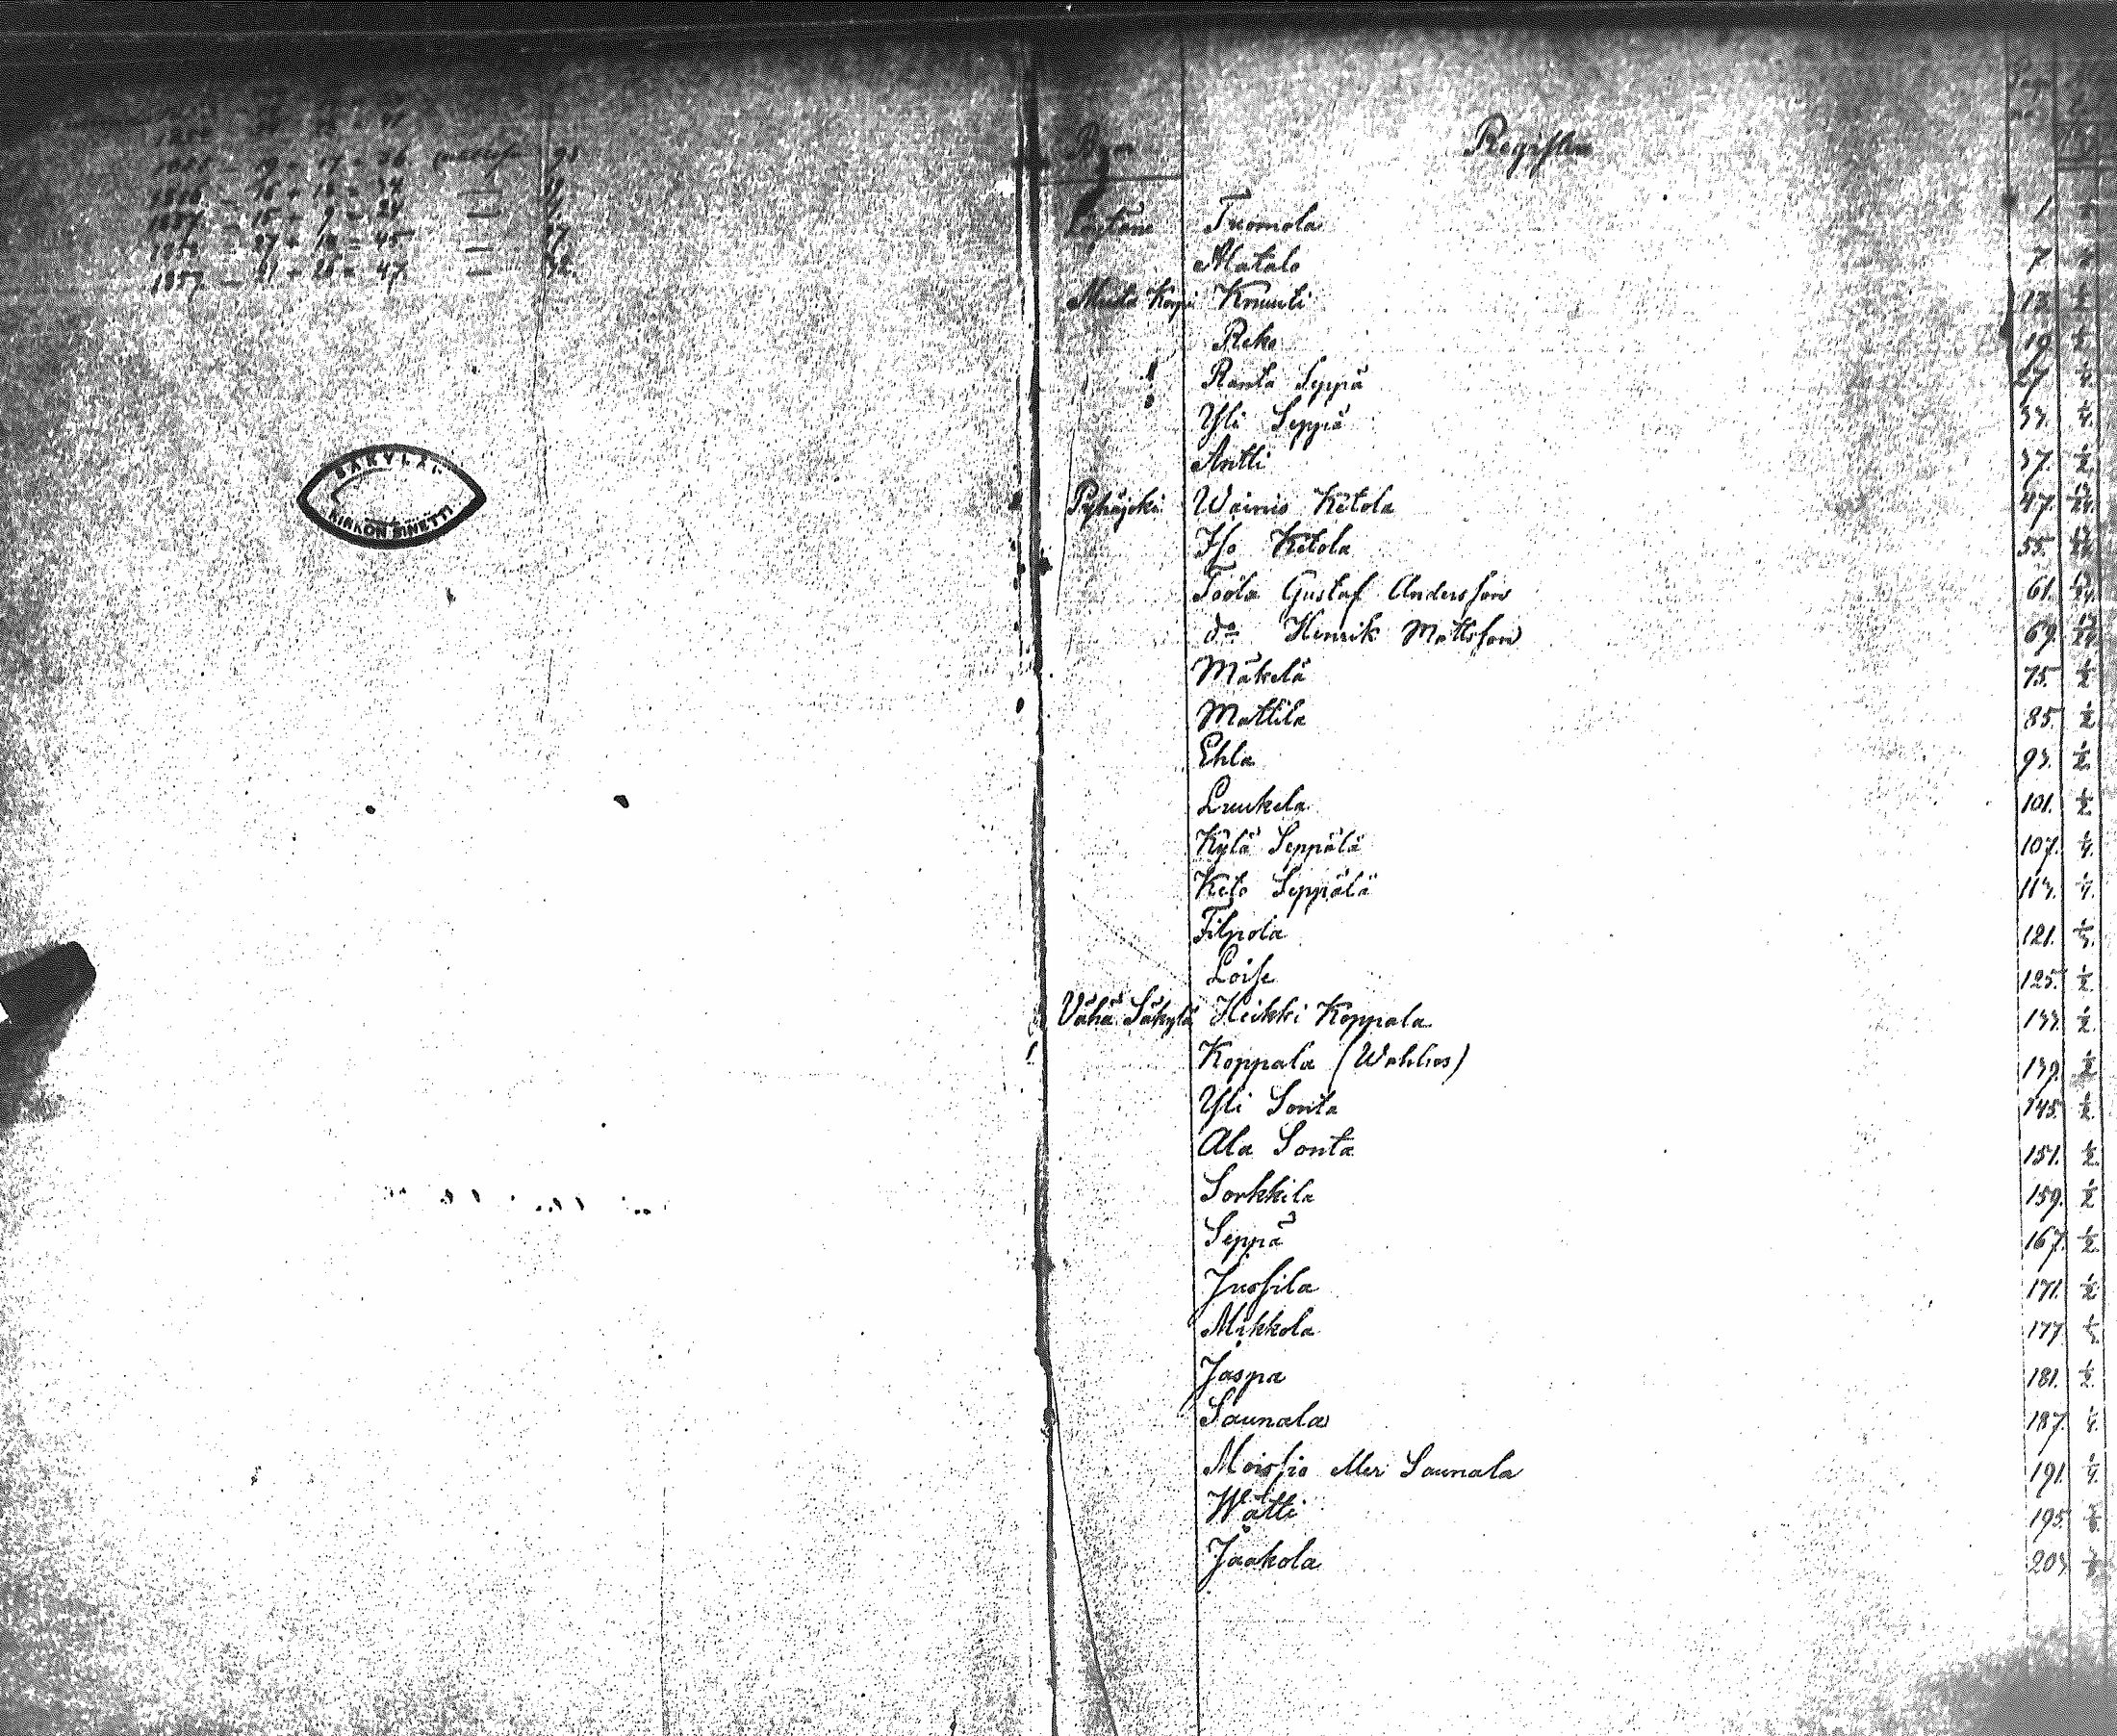 1855 – 19 + 17 = 36
1856 – 16 + 18 = 34 —
1857 – 15 + 9 = 24 —
1858 – 27 + 18 = 45 —
1859 – 21 + 26 = 47 —
SÄKYLÄN
KIRKON SINETTI
Byar Register
Löytäne Tuomola 1
Matalo 7
Muda Korpi Knuuti 13 1/2
Reko 19 1/2
Ranta Seppä 27 1/4
Yli Seppä 33. 1/4.
Antti 37. 1/2
Pyhäjoki Wainio Ketola 47.
Iso Ketola 55.
Toola Gustaf Andersson 61.
do Henrik Mattsson 69.
Mäkelä 75. 1/2
Mattila 85. 1/2
Ehla 93. 1/2
Luukela 101. 1/2
Kylä Seppälä 107. 1/4.
Keto Seppälä 113. 1/4.
Filpola 121. 1/3.
Loise 125. 1/2
Vähä Säkylä Heikki Koppala 133. 1/2
Koppala (Wahlros) 139. 1/2
Yli Sonta 145. 1/2
Ala Sonta 151. 1/2
Sorkkila 159. 1/2
Seppä 167. 1/2
Jussila 171. 1/2
Mikkola 177. 1/3.
Jaspa 181. 1/2
Saunala 187. 1/4.
Moisio eller Saunala 191. 1/4.
Wätti 195.
Jaakola 203